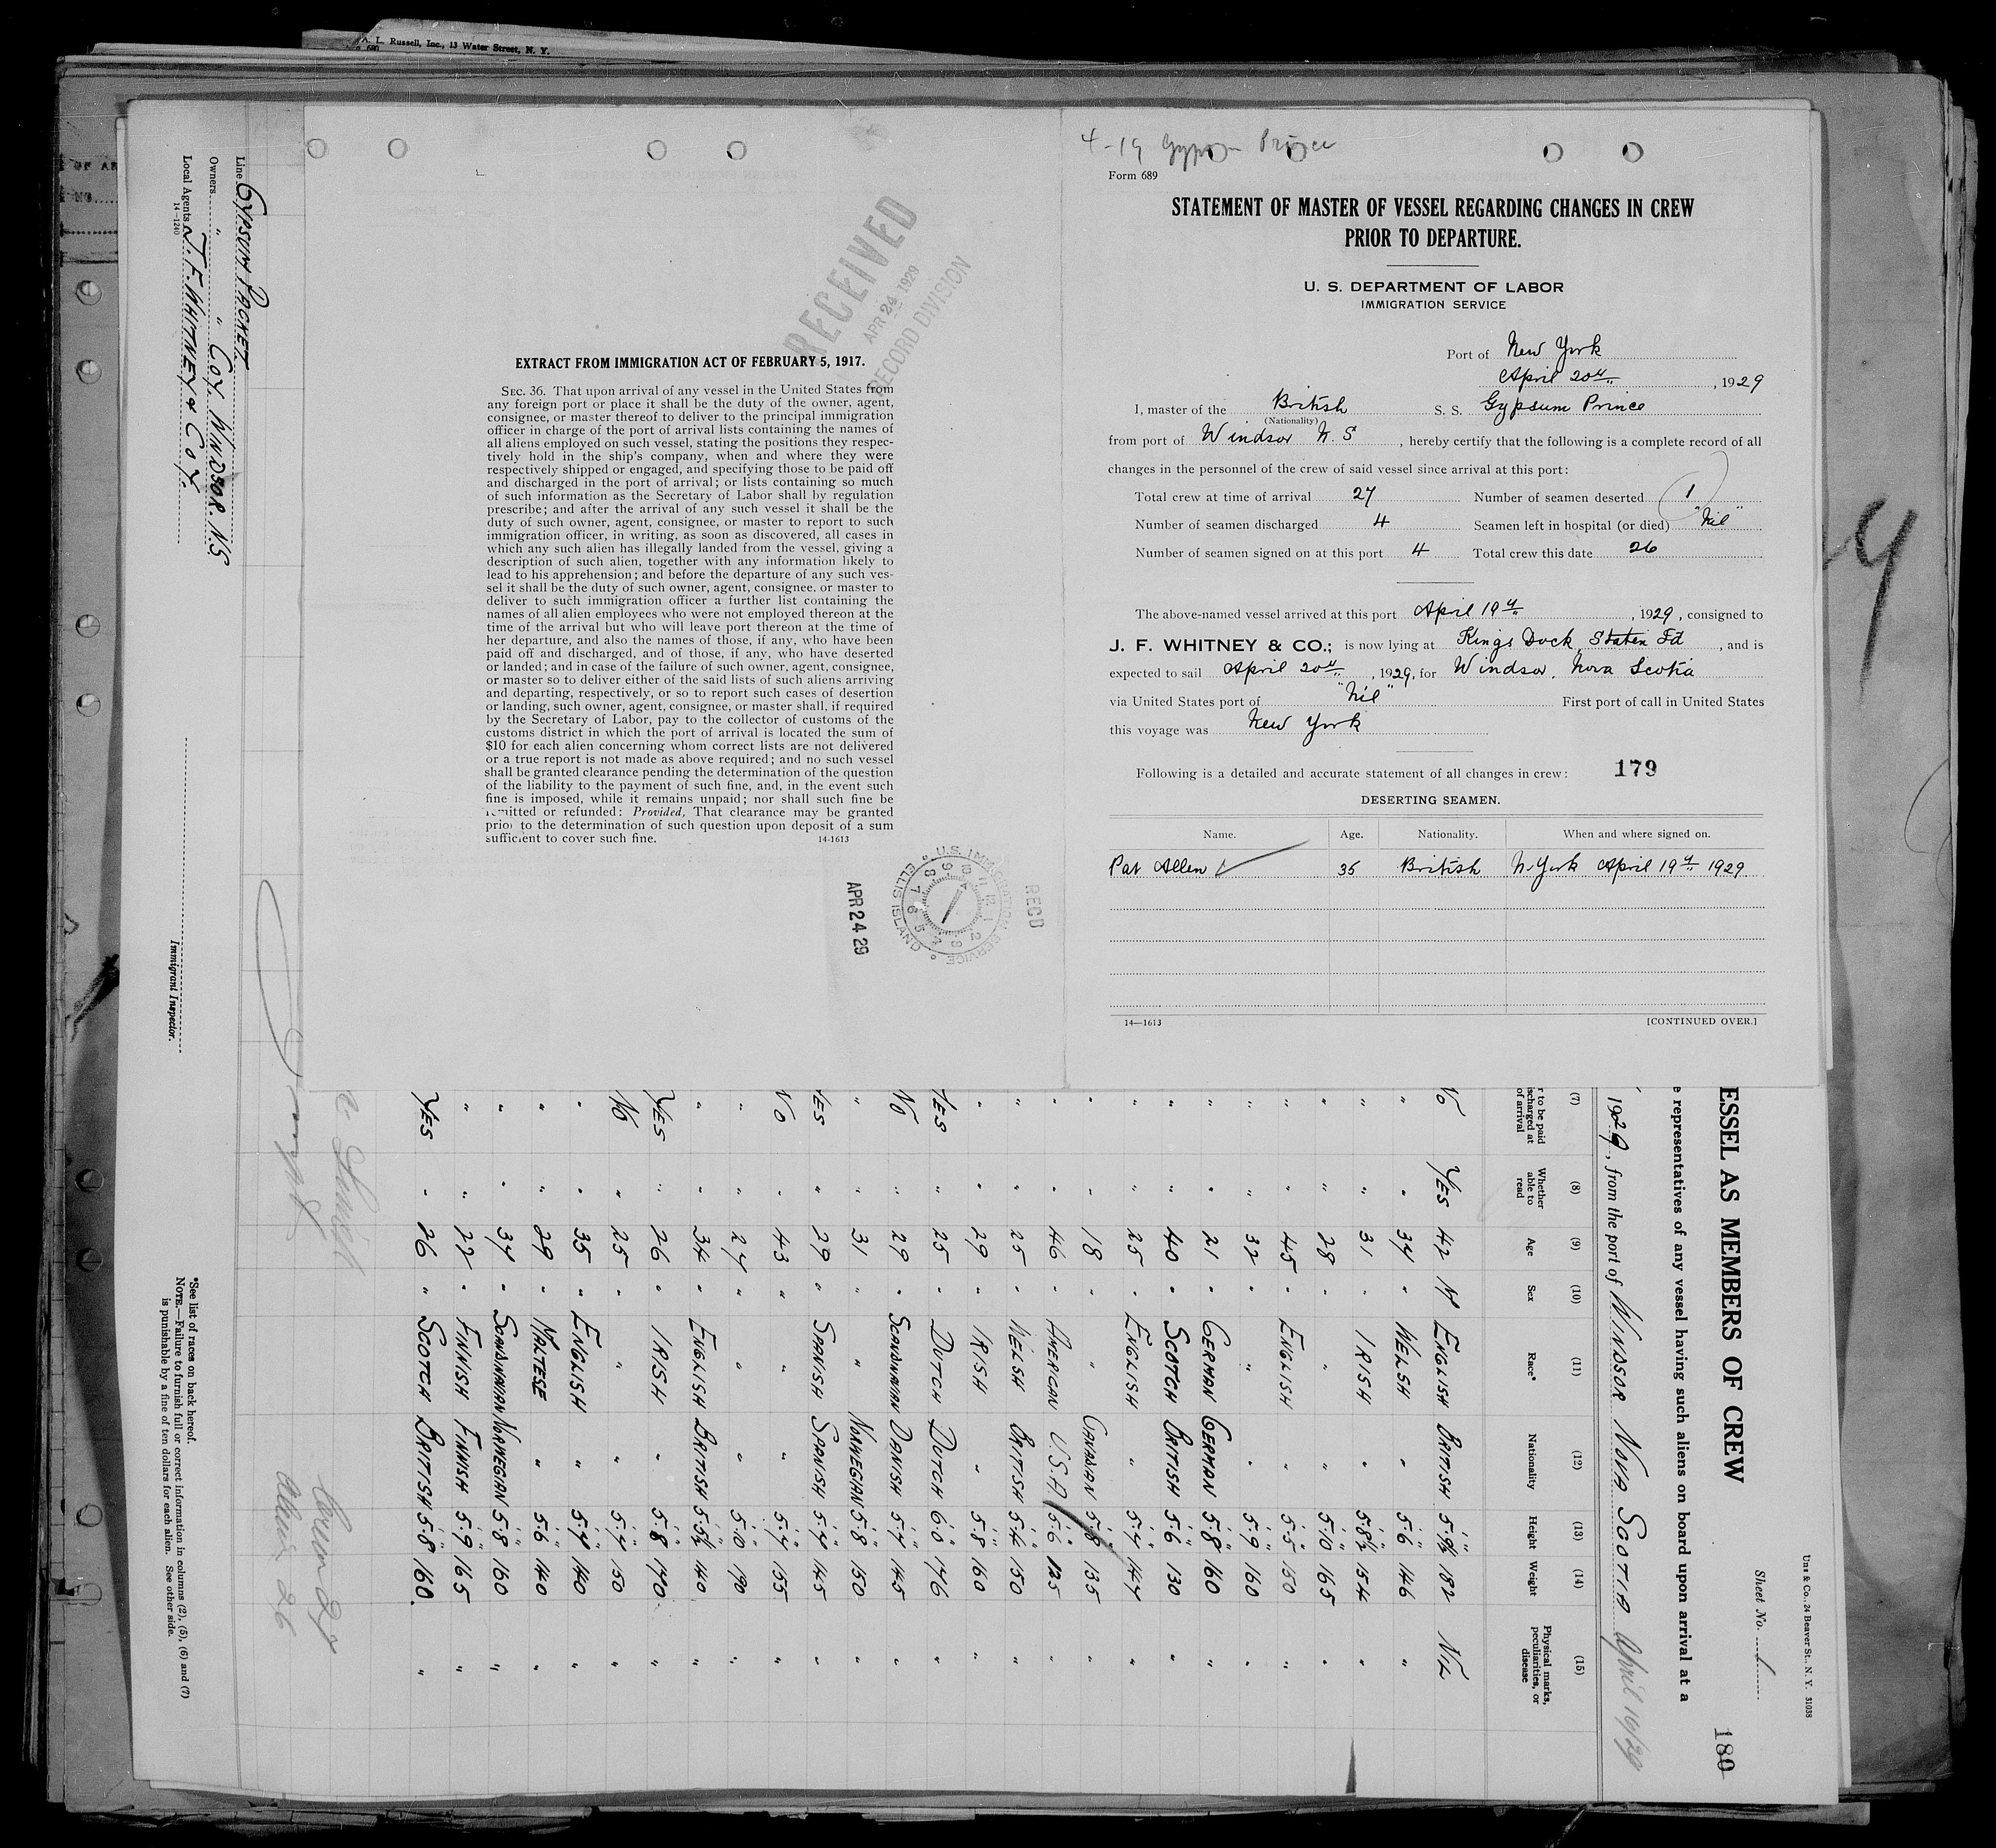 A. L. Russell, Inc., 13 Water Street, N. Y.
680
4-19 Gypsum Prince
Form 689
STATEMENT OF MASTER OF VESSEL REGARDING CHANGES IN CREW
PRIOR TO DEPARTURE.
U. S. DEPARTMENT OF LABOR
IMMIGRATION SERVICE
Port of New York
April 20th, 1929
I, master of the British S. S. Gypsum Prince
(Nationality)
from port of Windsor N. S, hereby certify that the following is a complete record of all
changes in the personnel of the crew of said vessel since arrival at this port:
Total crew at time of arrival 27 Number of seamen deserted 1
Number of seamen discharged 4 Seamen left in hospital (or died) "Nil"
Number of seamen signed on at this port 4 Total crew this date 26
The above-named vessel arrived at this port April 19th, 1929, consigned to
J. F. WHITNEY & CO.; is now lying at Kings Dock, Staten Id, and is
expected to sail April 20th, 1929, for Windsor, Nova Scotia
via United States port of "Nil" First port of call in United States
this voyage was New York
Following is a detailed and accurate statement of all changes in crew: 179
DESERTING SEAMEN.
Name. Age. Nationality. When and where signed on.
Pat Allen 35 British N. York April 19th 1929
14—1613 [CONTINUED OVER.]
RECEIVED
APR 24 1929
RECORD DIVISION
EXTRACT FROM IMMIGRATION ACT OF FEBRUARY 5, 1917.
SEC. 36. That upon arrival of any vessel in the United States from
any foreign port or place it shall be the duty of the owner, agent,
consignee, or master thereof to deliver to the principal immigration
officer in charge of the port of arrival lists containing the names of
all aliens employed on such vessel, stating the positions they respec-
tively hold in the ship's company, when and where they were
respectively shipped or engaged, and specifying those to be paid off
and discharged in the port of arrival; or lists containing so much
of such information as the Secretary of Labor shall by regulation
prescribe; and after the arrival of any such vessel it shall be the
duty of such owner, agent, consignee, or master to report to such
immigration officer, in writing, as soon as discovered, all cases in
which any such alien has illegally landed from the vessel, giving a
description of such alien, together with any information likely to
lead to his apprehension; and before the departure of any such ves-
sel it shall be the duty of such owner, agent, consignee, or master to
deliver to such immigration officer a further list containing the
names of all alien employees who were not employed thereon at the
time of the arrival but who will leave port thereon at the time of
her departure, and also the names of those, if any, who have been
paid off and discharged, and of those, if any, who have deserted
or landed; and in case of the failure of such owner, agent, consignee,
or master so to deliver either of the said lists of such aliens arriving
and departing, respectively, or so to report such cases of desertion
or landing, such owner, agent, consignee, or master shall, if required
by the Secretary of Labor, pay to the collector of customs of the
customs district in which the port of arrival is located the sum of
$10 for each alien concerning whom correct lists are not delivered
or a true report is not made as above required; and no such vessel
shall be granted clearance pending the determination of the question
of the liability to the payment of such fine, and, in the event such
fine is imposed, while it remains unpaid; nor shall such fine be
remitted or refunded: Provided, That clearance may be granted
prior to the determination of such question upon deposit of a sum
sufficient to cover such fine. 14-1613
U.S. IMMIGRATION SERVICE
ELLIS ISLAND
RECD
APR 24 29
Uns & Co., 24 Beaver St., N. Y. 31038
Sheet No. 1
180
ESSEL AS MEMBERS OF CREW
e representatives of any vessel having such aliens on board upon arrival at a
1929, from the port of WINDSOR NOVA SCOTIA April 19/29
(7) (8) (9) (10) (11) (12) (13) (14) (15)
r to be paid
ischarged at
of arrival
Whether able to read
Age
Sex
Race*
Nationality
Height
Weight
Physical marks, peculiarities, or disease
NO YES 42 M ENGLISH BRITISH 5'9½" 182 NIL
" " 34 " WELSH " 5'6" 146 "
" " 31 " IRISH " 5'8½" 154 "
" " 28 " " " 5'10 165 "
" " 45 " ENGLISH " 5'5 150 "
" " 32 " " " 5'9 160 "
" " 21 " GERMAN GERMAN 5'8" 160 "
" " 40 " SCOTCH BRITISH 5'6 130 "
" " 25 " ENGLISH " 5'4 147 "
" " 18 " " CANADIAN 5'8 135 "
" " 46 " AMERICAN U.S.A 5'6 125 "
" " 25 " WELSH BRITISH 5'4 150 "
" " 29 " IRISH " 5'8 160 "
YES " 25 " DUTCH DUTCH 6'0" 176 "
NO " 29 " SCANDINAVIAN DANISH 5'4 145 "
" " 31 " " NORWEGIAN 5'8 150 "
YES " 29 " SPANISH SPANISH 5'4 145 "
NO " 43 " " " 5'4 155 "
" " 27 " " " 5'10 190 "
" " 34 " ENGLISH BRITISH 5'5½" 140 "
YES " 26 " IRISH " 5'8 170 "
NO " 25 " " " 5'7 150 "
" " 35 " ENGLISH " 5'7 140 "
" " 29 " MALTESE " 5'6 140 "
" " 34 " SCANDINAVIAN NORWEGIAN 5'8 160 "
" " 22 " FINNISH FINNISH 5'9 165 "
YES " 26 " SCOTCH BRITISH 5'8 160 "
Crew 27
Aliens 26
Line GYPSUM PACKET
Owners " " COY. WINDSOR. N.S
Local Agents J. F. WHITNEY & COY.
14—1240
Immigrant Inspector.
*See list of races on back hereof.
NOTE.—Failure to furnish full or correct information in columns (2), (5), (6) and (7)
is punishable by a fine of ten dollars for each alien. See other side.